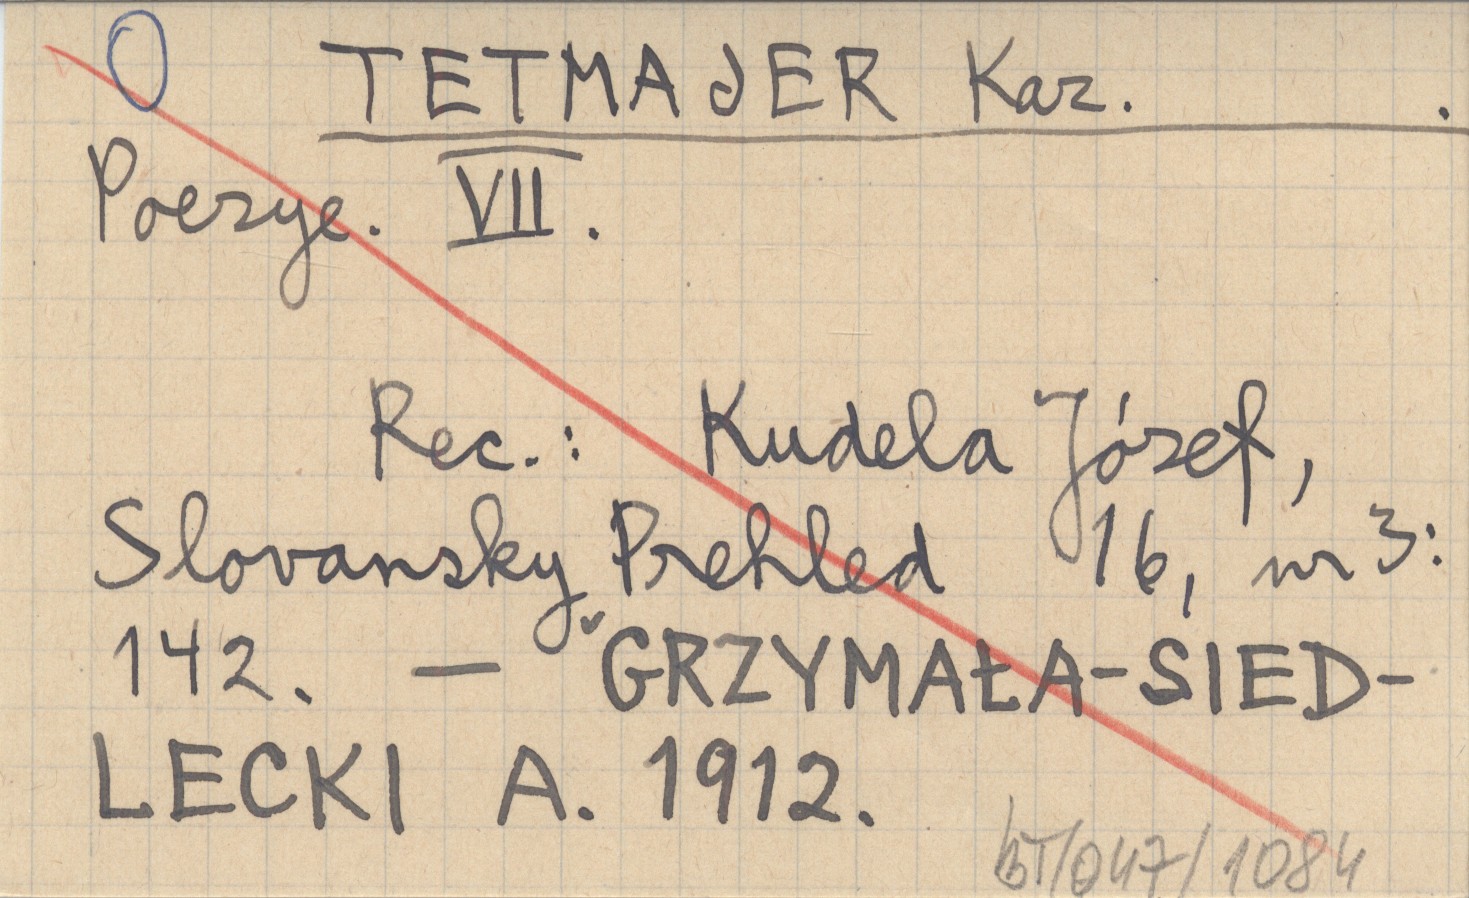 TETMAJER Kaz. .
Poezye. VII.
Rec.: Kudela Józef,
Slovansky Prehled 16, nr 3:
142. — GRZYMAŁA-SIED-
LECKI A. 1912.
BT/047/1084